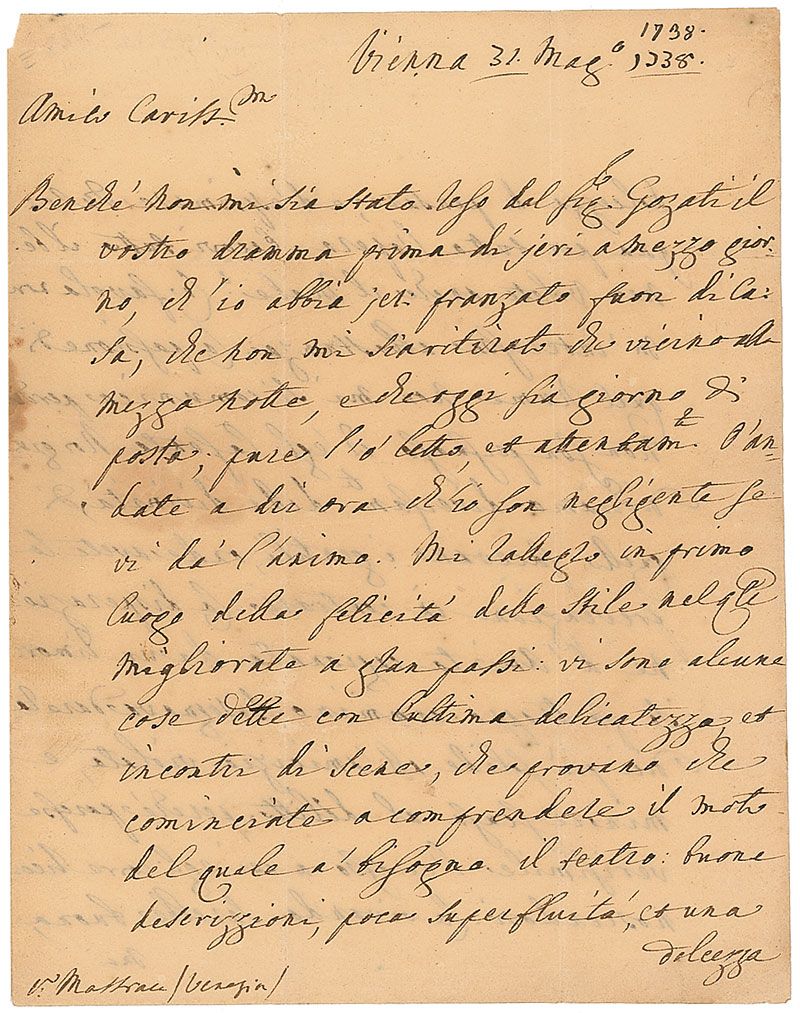 1738.
Vienna 31. Mag.o 1738.
Amico Cariss.mo
Benché non mi sia stato reso dal Sig.e Gozati il
vostro dramma prima di jeri a mezzo gior-
no, ch'io abbia jeri franzato fuori di Ca-
sa; che non mi sia ritirato che vicino alla
mezza notte, e che oggi sia giorno di
posta; pure l'ò letto, et attentam.te D'an-
date a dir ora ch'io son negligente se
vi dà l'animo. Mi rallegro in primo
luogo della felicità dello stile nel qle
migliorate a gran passi: vi sono alcune
cose dette con l'ultima delicatezza, et
incontri di scene, che provano che
cominciate a comprendere il moto
del quale a' bisogno il teatro: buone
descrizzioni, poca superfluità, et una
dolcezza
(Venezia)